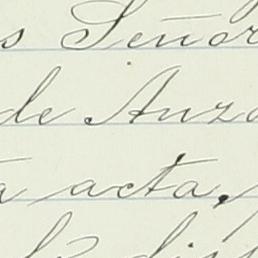 s Señor
de Anzo
a acta,